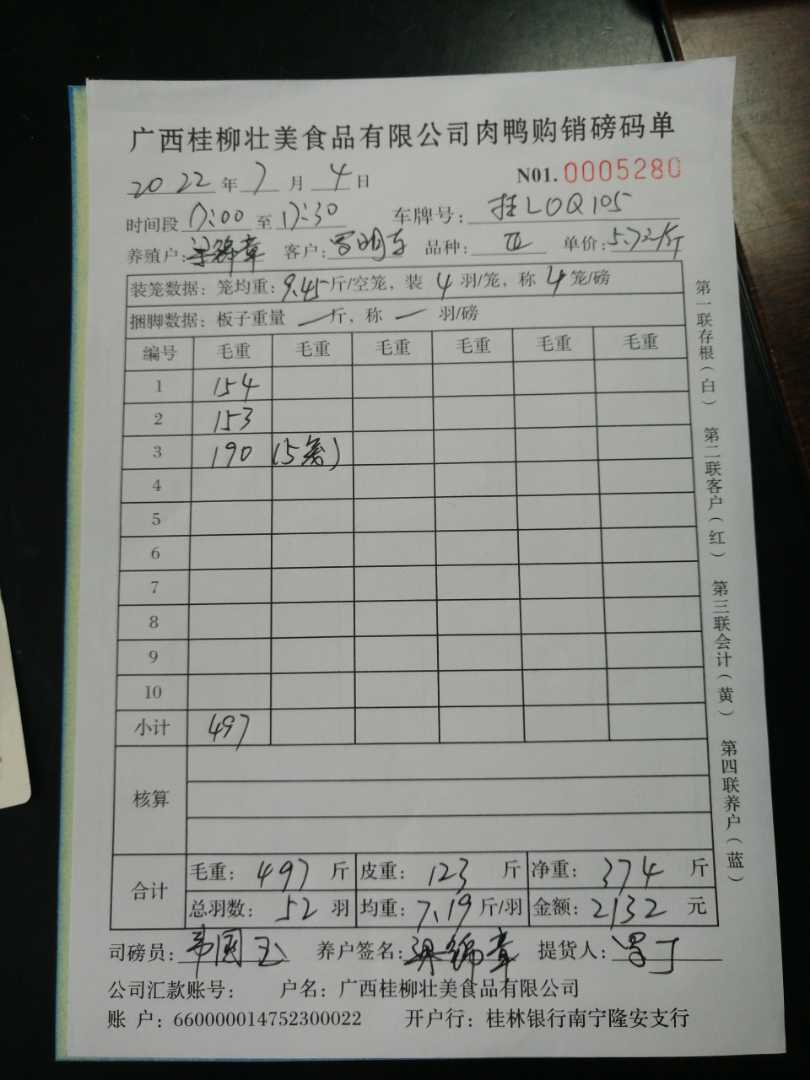 广西桂柳壮美食品有限公司肉鸭购销磅码单
2022年7月4日 N01.0005280
时间段17:00至17:30 车牌号:桂L0Q105
养殖户:梁锦章 客户: 品种: 单价:5.7元/斤
装笼数据:笼均重:9.45斤/空笼,装4羽/笼,称4笼/磅
捆脚数据:板子重量—斤,称—羽/磅
编号 毛重 毛重 毛重 毛重 毛重 毛重
1 154
2 153
3 190 (5笼)
4
5
6
7
8
9
10
小计 497
核算
合计 毛重:497斤 皮重:123斤 净重:374斤
总羽数:52羽 均重:7.19斤/羽 金额:2132元
司磅员:韦国玉 养户签名:梁锦章 提货人:
公司汇款账号: 户名:广西桂柳壮美食品有限公司
账 户:660000014752300022 开户行:桂林银行南宁隆安支行
第一联存根(白) 第二联客户(红) 第三联会计(黄) 第四联养户(蓝)